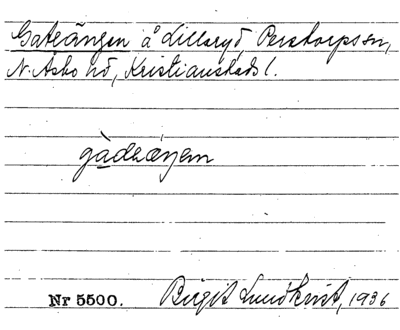 Gateängen å Lillaryd, Perstorps sn,
N. Åsbo hd, Kristianstads l.
gàdeäŋen
Nr 5500. Birgit Lundkvist, 1936